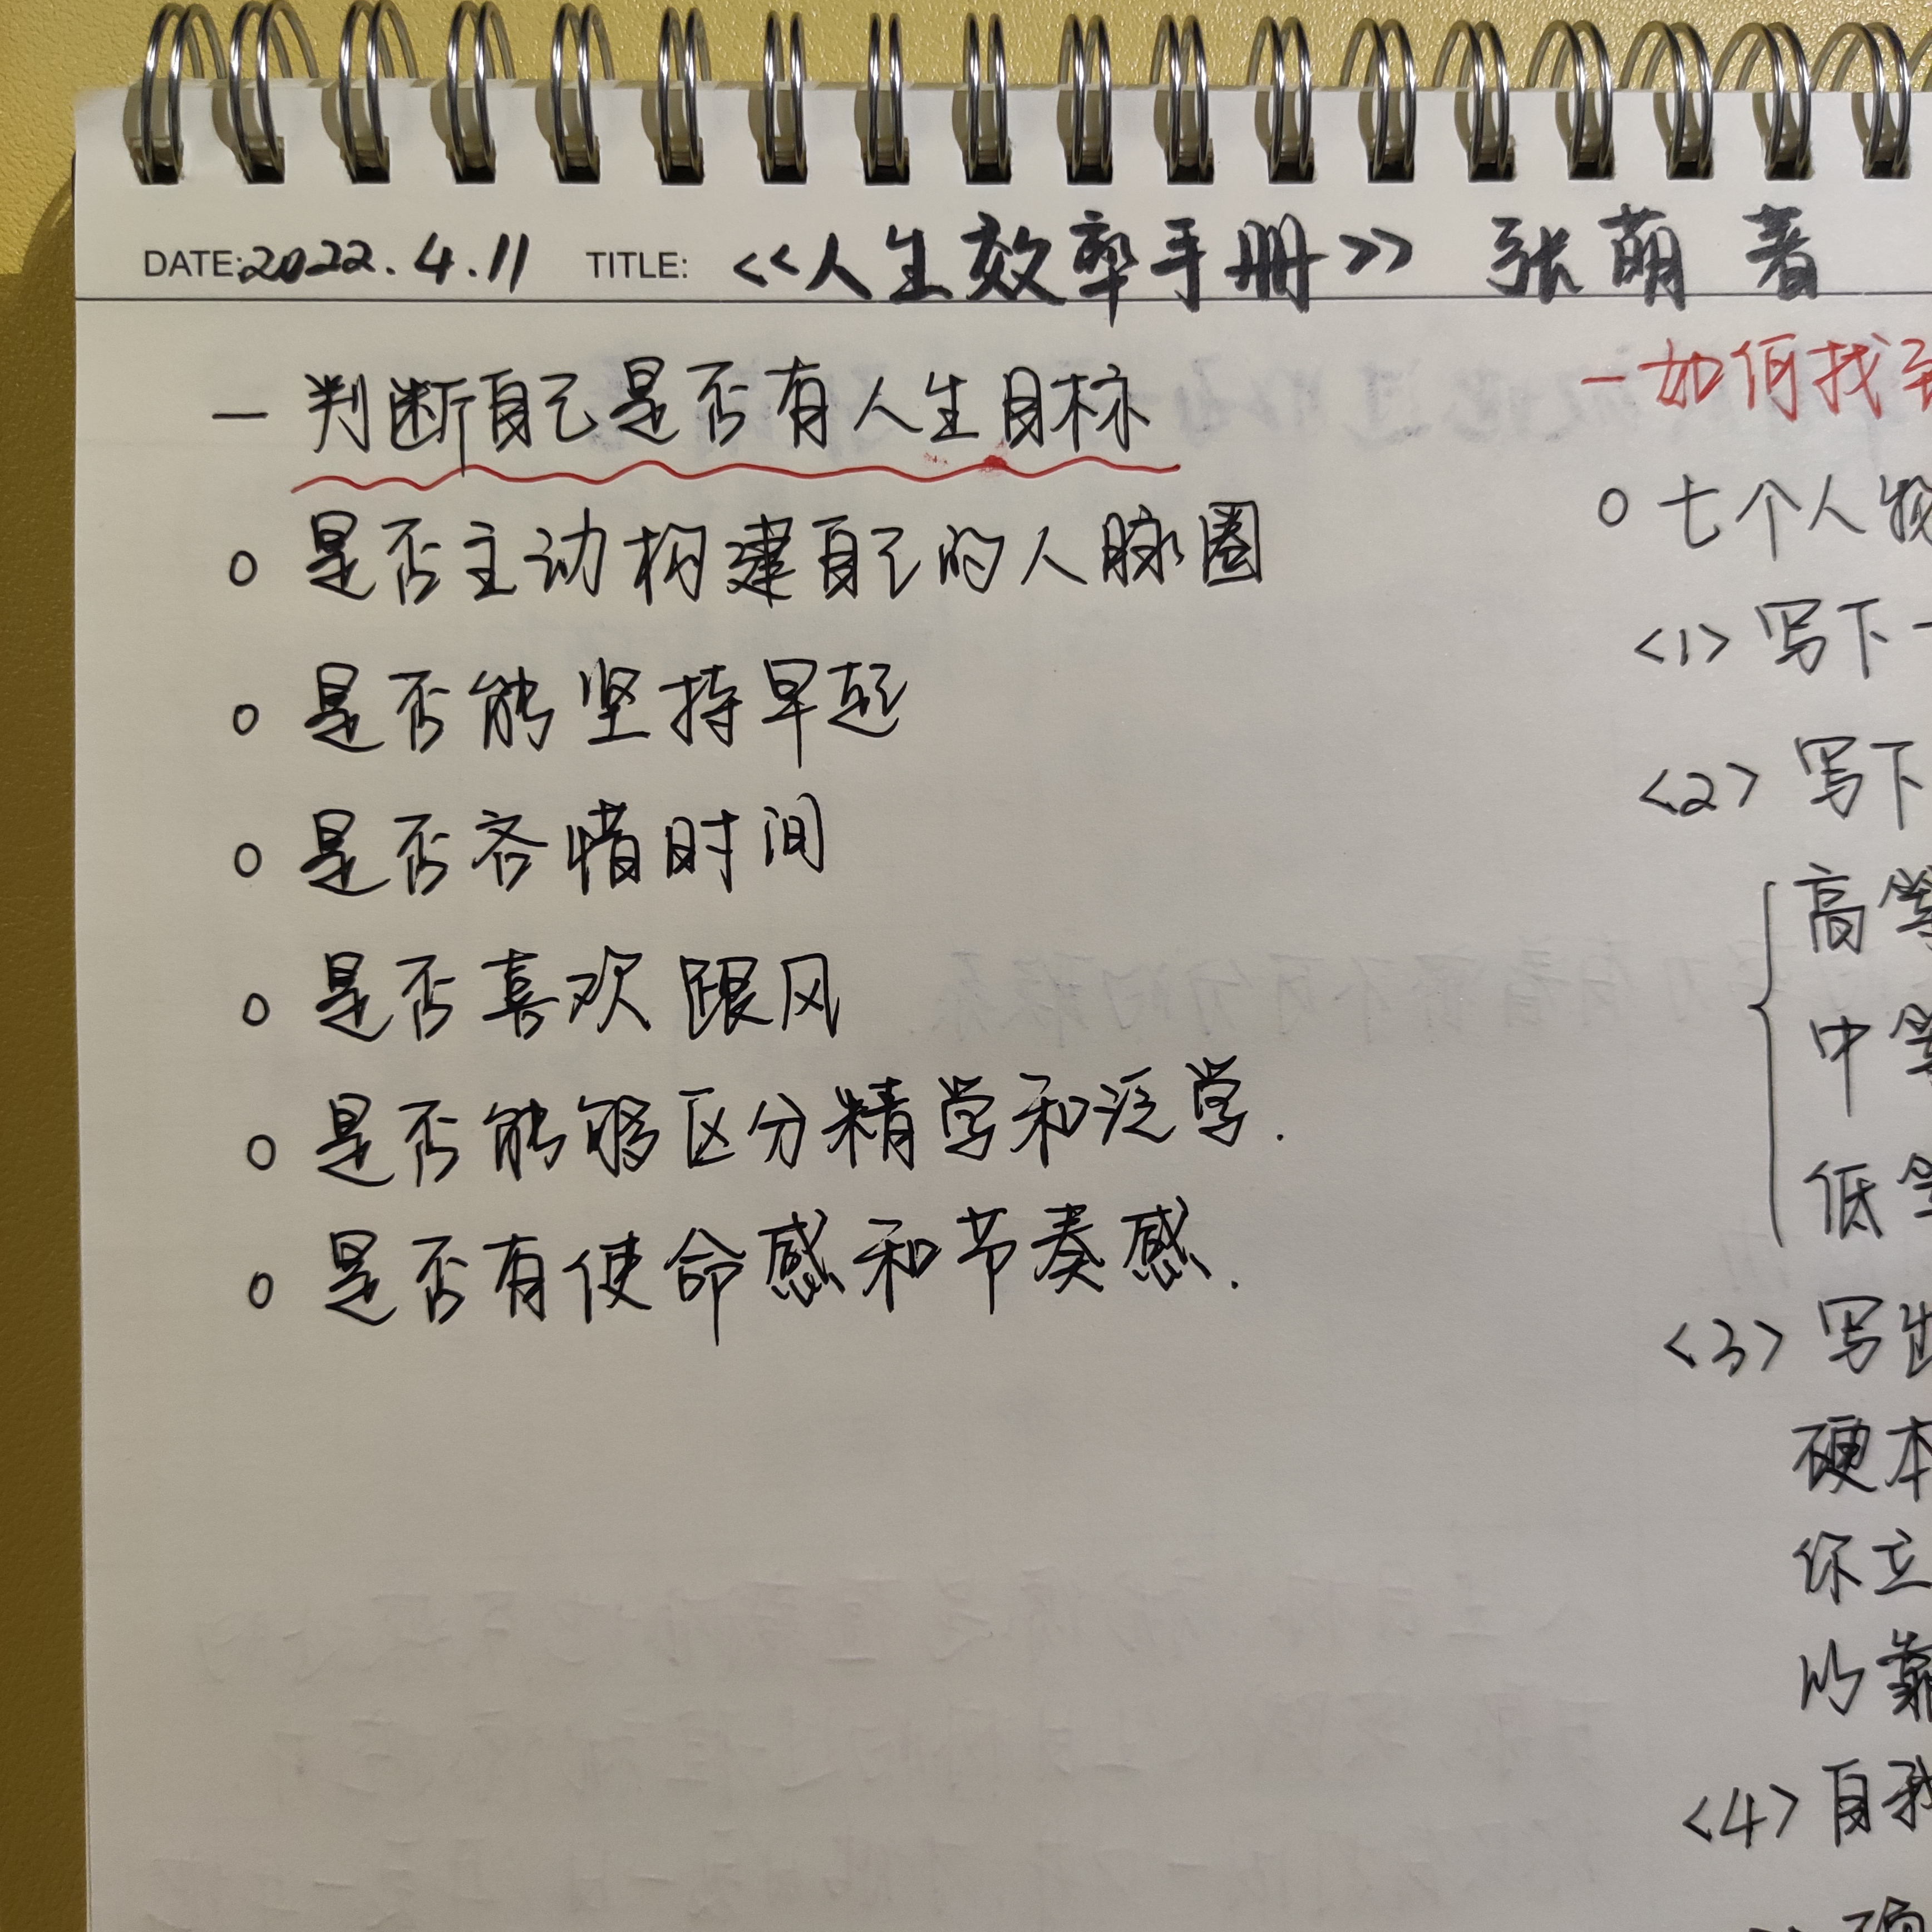 DATE:2022.4.11 TITLE: <<人生效率手册>> 张萌 著
一 判断自己是否有人生目标
○ 是否主动构建自己的人脉圈
○ 是否能坚持早起
○ 是否吝惜时间
○ 是否喜欢跟风
○ 是否能够区分精学和泛学.
○ 是否有使命感和节奏感.
一如何找
○ 七个人物
<1> 写下一
<2> 写下
高等
中等
低等
<3> 写出
硬本
你立
以靠
<4> 自我